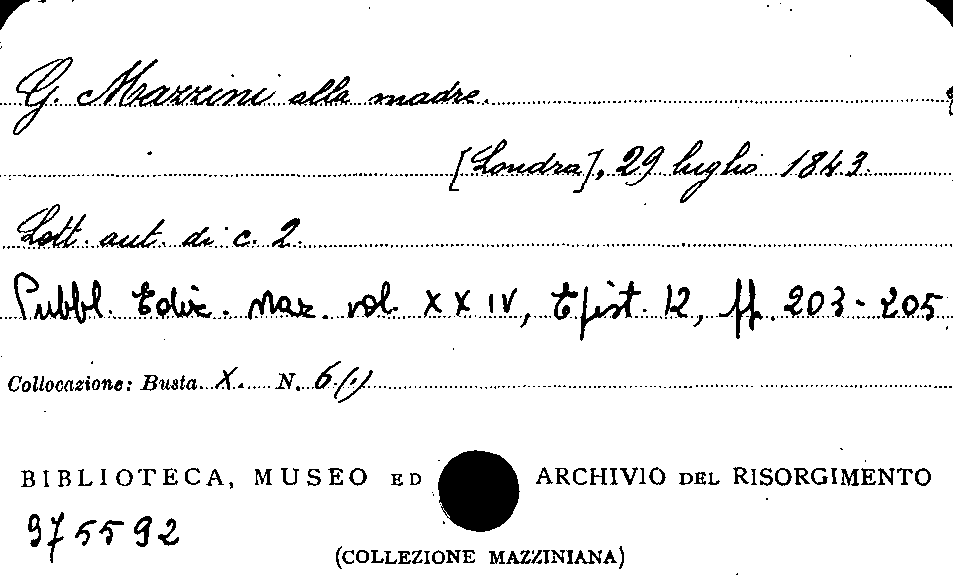 G. Mazzini alla madre.
[Londra], 29 luglio 1843.
Lett. aut. di c. 2.
Pubbl. Ediz. Naz. vol. XXIV, Epist. 12, pp. 203-205
Collocazione: Busta X. N. 6(1)
BIBLIOTECA, MUSEO ED ARCHIVIO DEL RISORGIMENTO
975592
(COLLEZIONE MAZZINIANA)